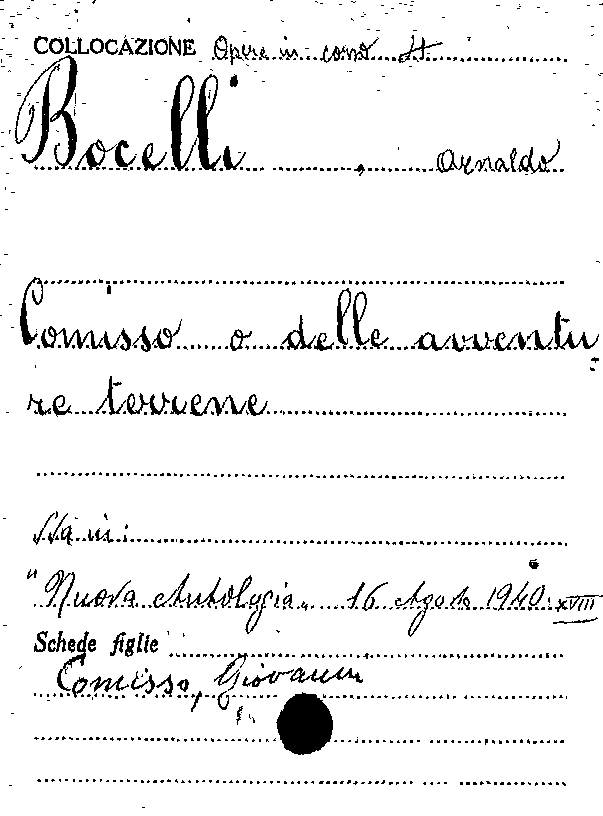 COLLOCAZIONE Opere in corso It
Bocelli, Arnaldo
Comisso o delle avventu=
re terrene
Sta in:
"Nuova Antologia„ 16 Agosto 1940. XVIII
Schede figlie
Comisso, Giovanni